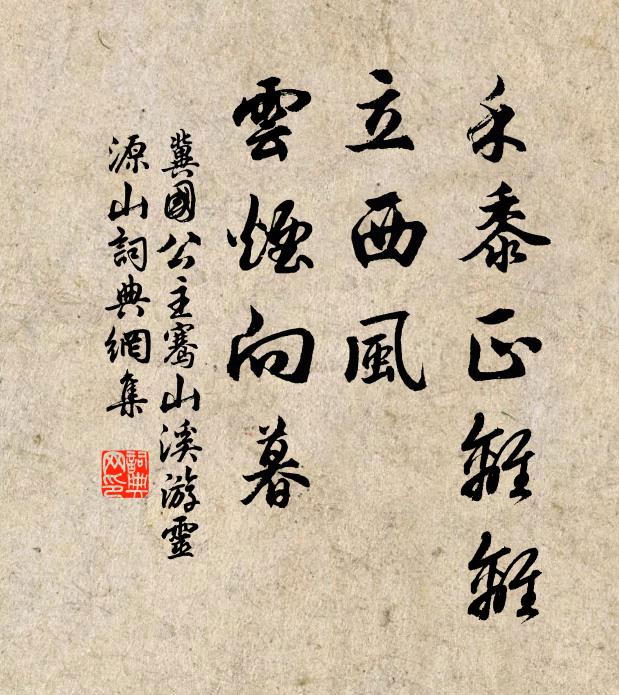 禾黍正離離
立西風
雲煙向暮
冀國公主驀山溪游靈
源山詞典網集
詞典网印